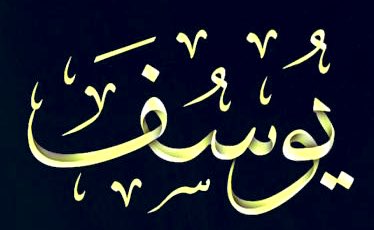 يُوسُفَ